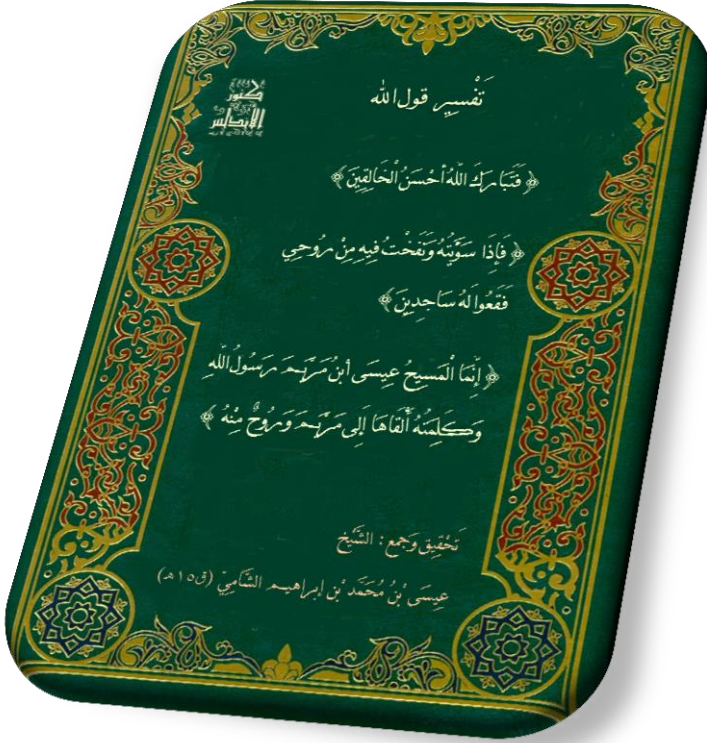 تَفْسِير قول الله
كنوز
الأندلس
﴿ فَتَبَارَكَ اللَّهُ أَحْسَنُ الْخَالِقِينَ ﴾
﴿ فَإِذَا سَوَّيْتُهُ وَنَفَخْتُ فِيهِ مِنْ رُوحِي
فَقَعُوا لَهُ سَاجِدِينَ ﴾
﴿ إِنَّمَا الْمَسِيحُ عِيسَى ابْنُ مَرْيَمَ رَسُولُ اللَّهِ
وَكَلِمَتُهُ أَلْقَاهَا إِلَى مَرْيَمَ وَرُوحٌ مِنْهُ ﴾
تَحْقِيق وَجمع : الشَّيخ
عِيسَى بْنُ مُحَمَّد بْن ابراهيم الشَّامِيّ (ق١٥هـ)